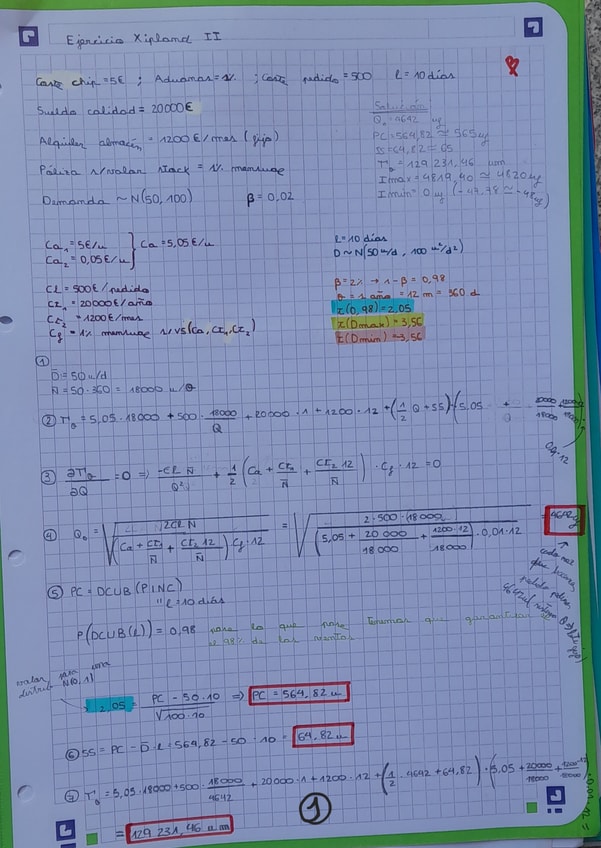 Ejercicio Xiplond II
Coste chip = 5€ ; Aduanas = 1% ; Coste pedido = 500 l = 10 días
Sueldo calidad = 20000€
Alquiler almacén = 1200€/mes (fijo)
Póliza s/valor stock = 1% mensual
Demanda ~ N(50, 100) β = 0,02
Solución:
Q₀ = 4642 ug
PC = 564,82 ≃ 565 ug
SS = 64,82 = 65
T'₀ = 129 231,46 um
Imax = 4819,40 ≃ 4820 ug
Imin = 0 ug
Ca₁ = 5€/u
Ca₂ = 0,05€/u
Ca = 5,05€/u
CL = 500€/pedido
CI₁ = 20000€/año
CI₂ = 1200€/mes
Cg = 1% mensual s/VS (Ca, CI₁, CI₂)
l = 10 días
D ~ N(50 u/d, 100 u²/d²)
β = 2% → 1 - β = 0,98
θ = 1 año = 12 m = 360 d
z(0,98) = 2,05
z(Dmax) = 3,56
z(Dmin) = -3,56
①
D̄ = 50 u/d
N̄ = 50 · 360 = 18000 u/θ
② T'θ = 5,05 · 18000 + 500 · 18000/Q + 20000 · 1 + 1200 · 12 + (1/2 Q + SS) · (5,05 + 20000/18000 + 1200·12/18000)
③ ∂T'θ/∂Q = 0 ⇒ -CL N̄/Q² + 1/2 (Ca + CI₁/N̄ + CI₂ 12/N̄) · Cg · 12 = 0
④ Q₀ = √(2CL N̄ / ((Ca + CI₁/N̄ + CI₂ 12/N̄) Cg · 12)) = √(2 · 500 · 18000 / ((5,05 + 20 000/18 000 + 1200·12/18000) · 0,01 · 12)) = 4642
cada vez
que lanzas
pedido
⑤ PC = DCUB (PINC)
" l = 10 días
P(DCUB(l)) = 0,98 para lo que pone tenemos que garantizar
el 98% de las ventas
valor para una
distrib N(0,1)
2,05 = PC - 50·10 / √100·10 ⇒ PC = 564,82 u
⑥ SS = PC - D̄ · l = 564,82 - 50 · 10 = 64,82 u
⑦ T'θ = 5,05 · 18000 + 500 · 18000/4642 + 20000 · 1 + 1200 · 12 + (1/2 · 4642 + 64,82) · (5,05 + 20000/18000 + 1200·12/18000) · 0,01 · 12 =
= 129 231,46 um
1